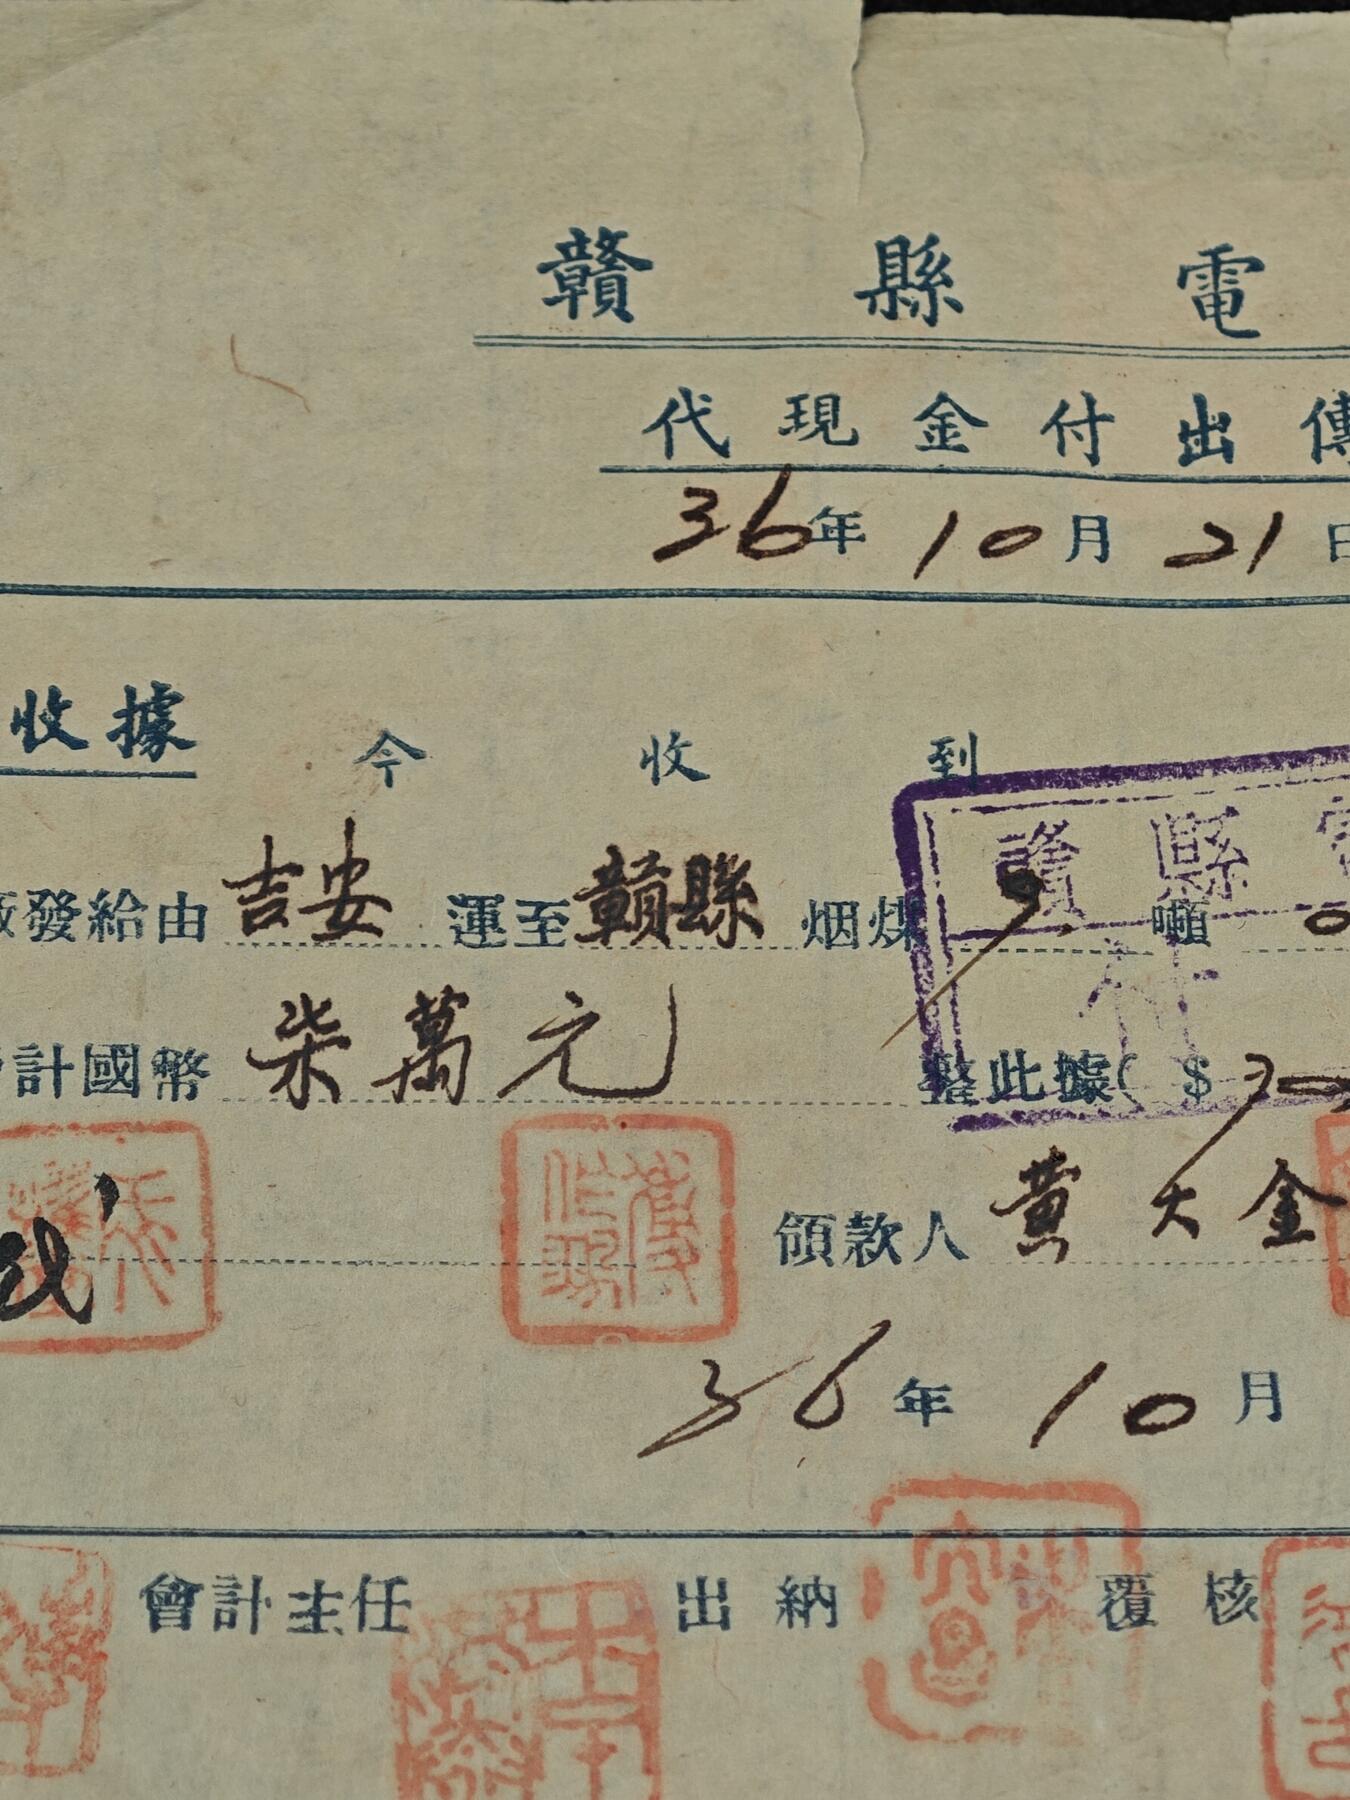 贛縣電
代現金付出傳
36年10月21日
收據
今收到
廠發給由吉安運至贛縣烟煤 噸
計國幣柒萬元整此據($70,
贛縣電
付
領款人黄大金
36年10月
會計主任 出納 覆核